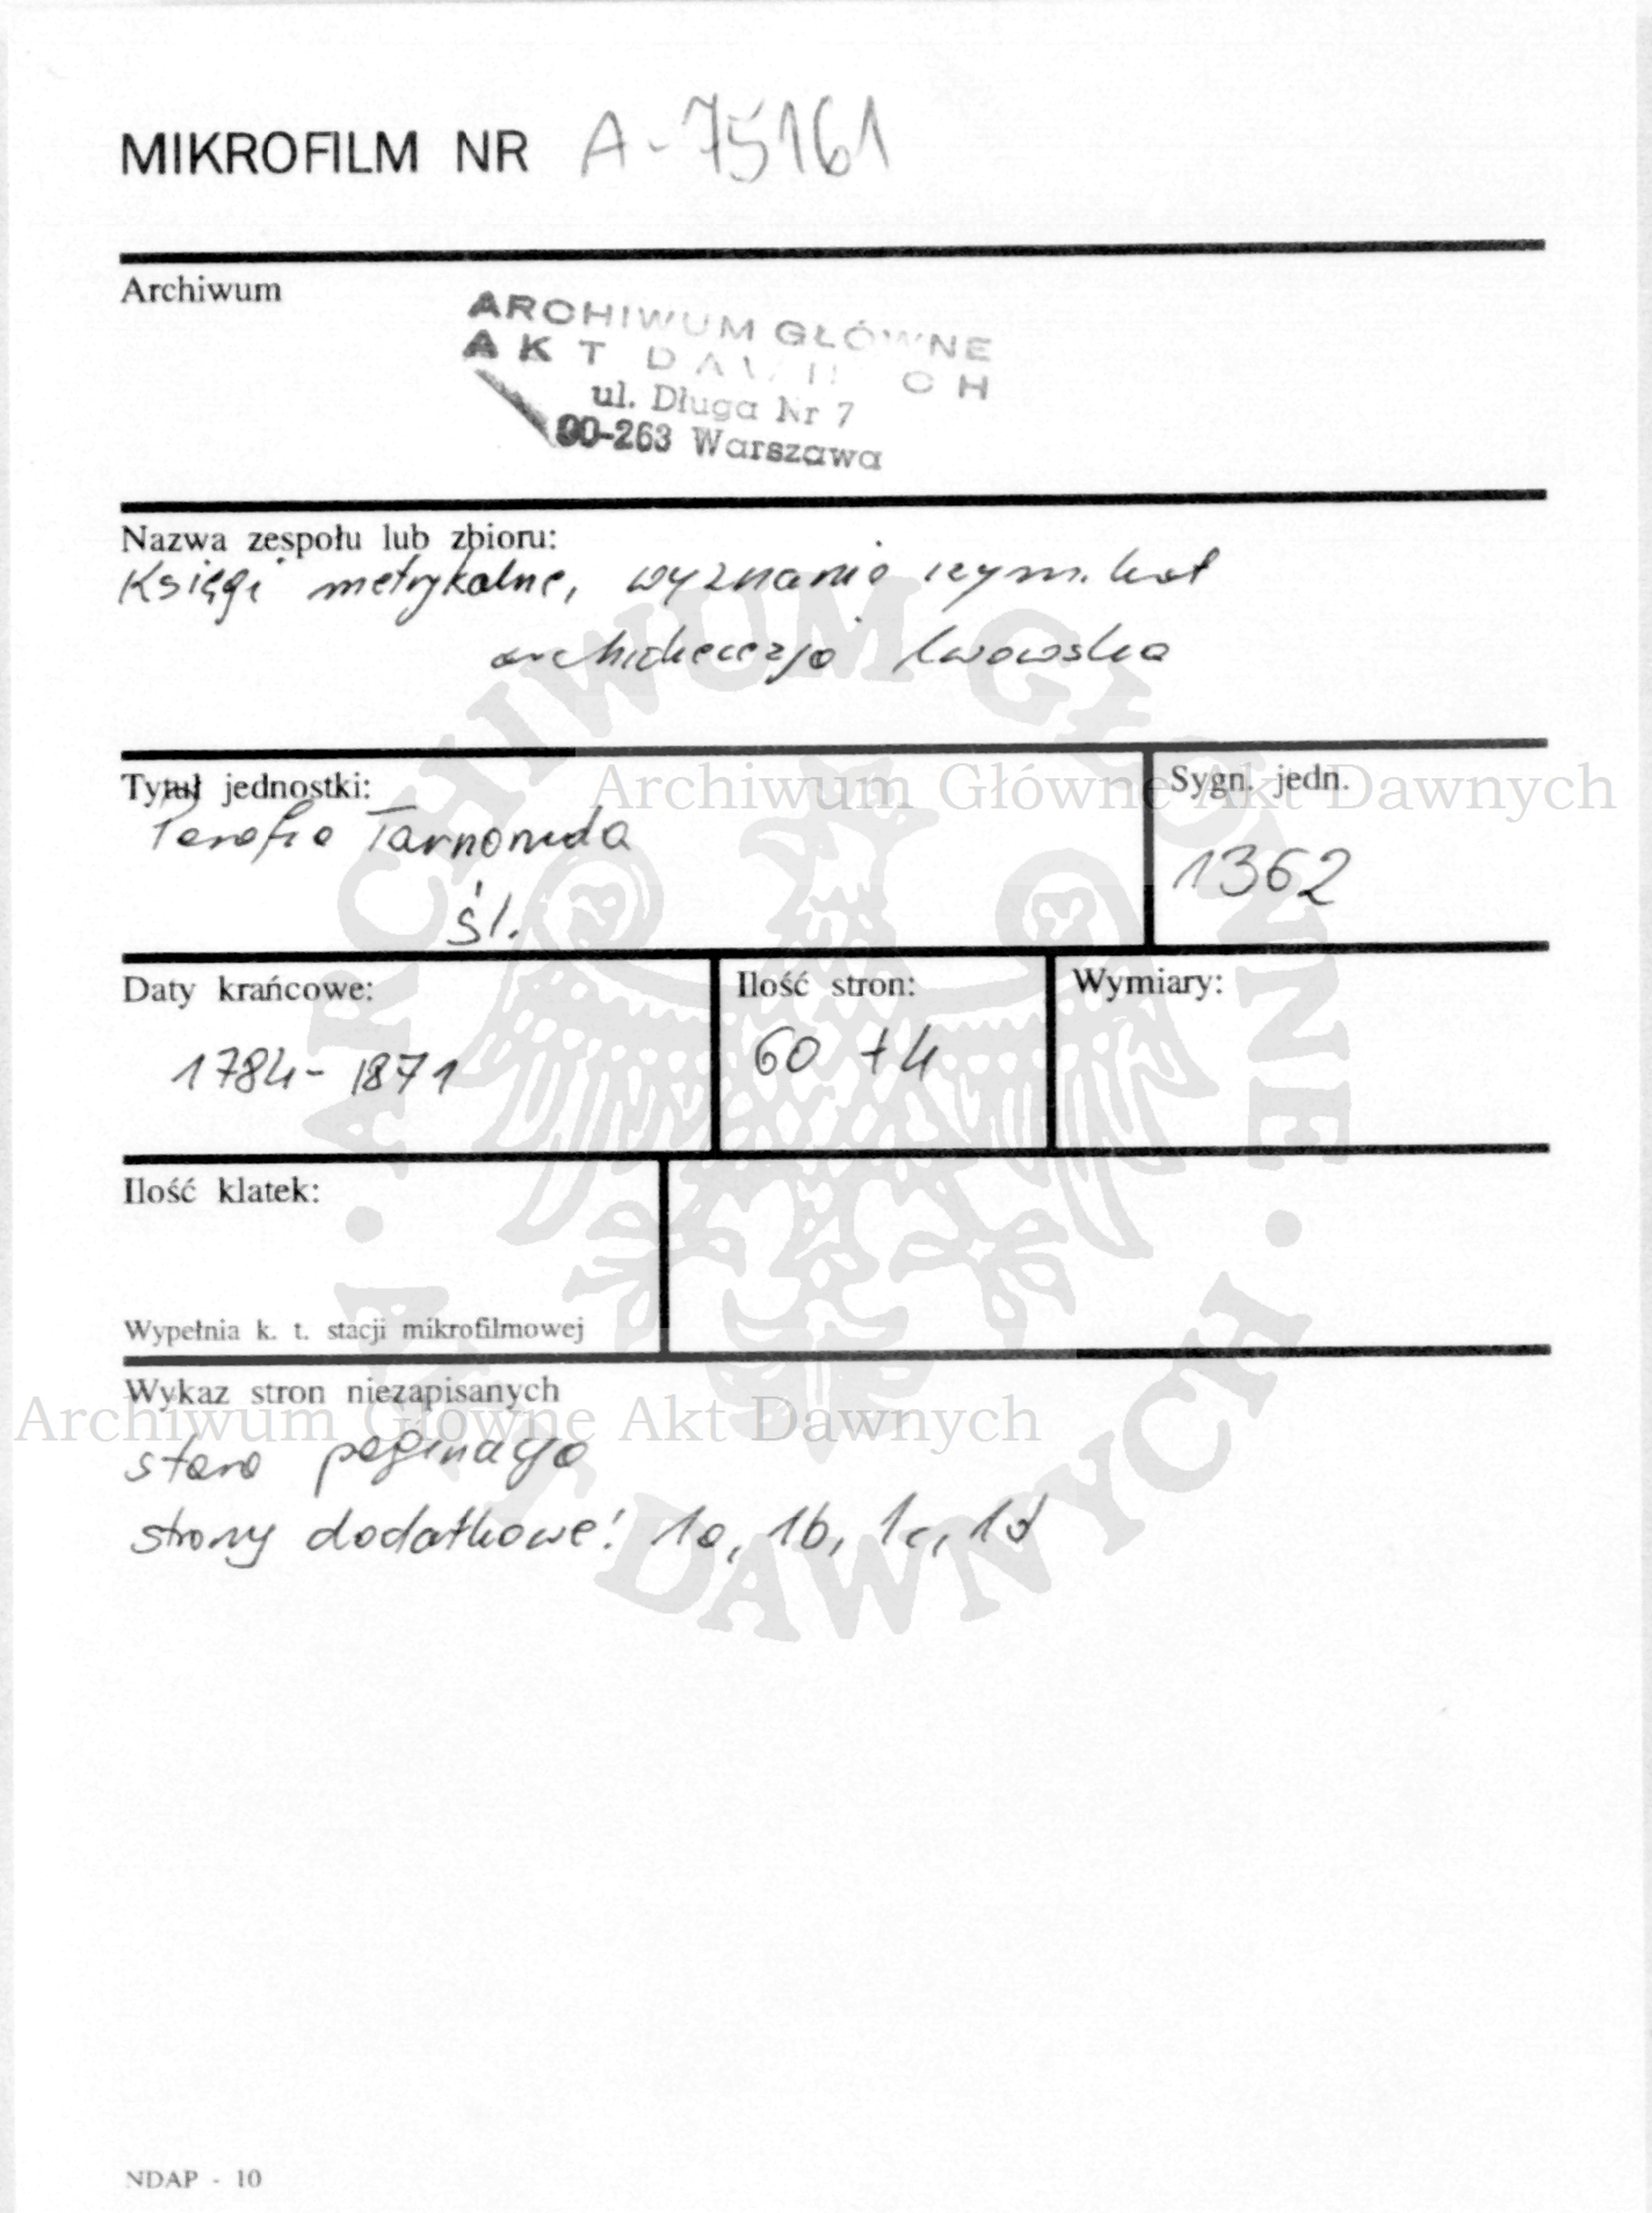 MIKROFILM NR A-75161
Archiwum
ARCHIWUM GŁÓWNE
AKT DAWNYCH
ul. Długa Nr 7
00-263 Warszawa
Nazwa zespołu lub zbioru:
Księgi metrykalne, wyznanie rzym. kat
archidiecezja lwowska
Tytuł jednostki:
Parafia Tarnoruda
śl.
Sygn. jedn.
1362
Daty krańcowe:
1784-1871
Ilość stron:
60 +4
Wymiary:
Ilość klatek:
Wypełnia k. t. stacji mikrofilmowej
Wykaz stron niezapisanych
stara paginacja
strony dodatkowe! 1a, 1b, 1c, 1d
NDAP - 10
Archiwum Główne Akt Dawnych
Archiwum Główne Akt Dawnych
ARCHIWUM GŁÓWNE · AKT DAWNYCH ·